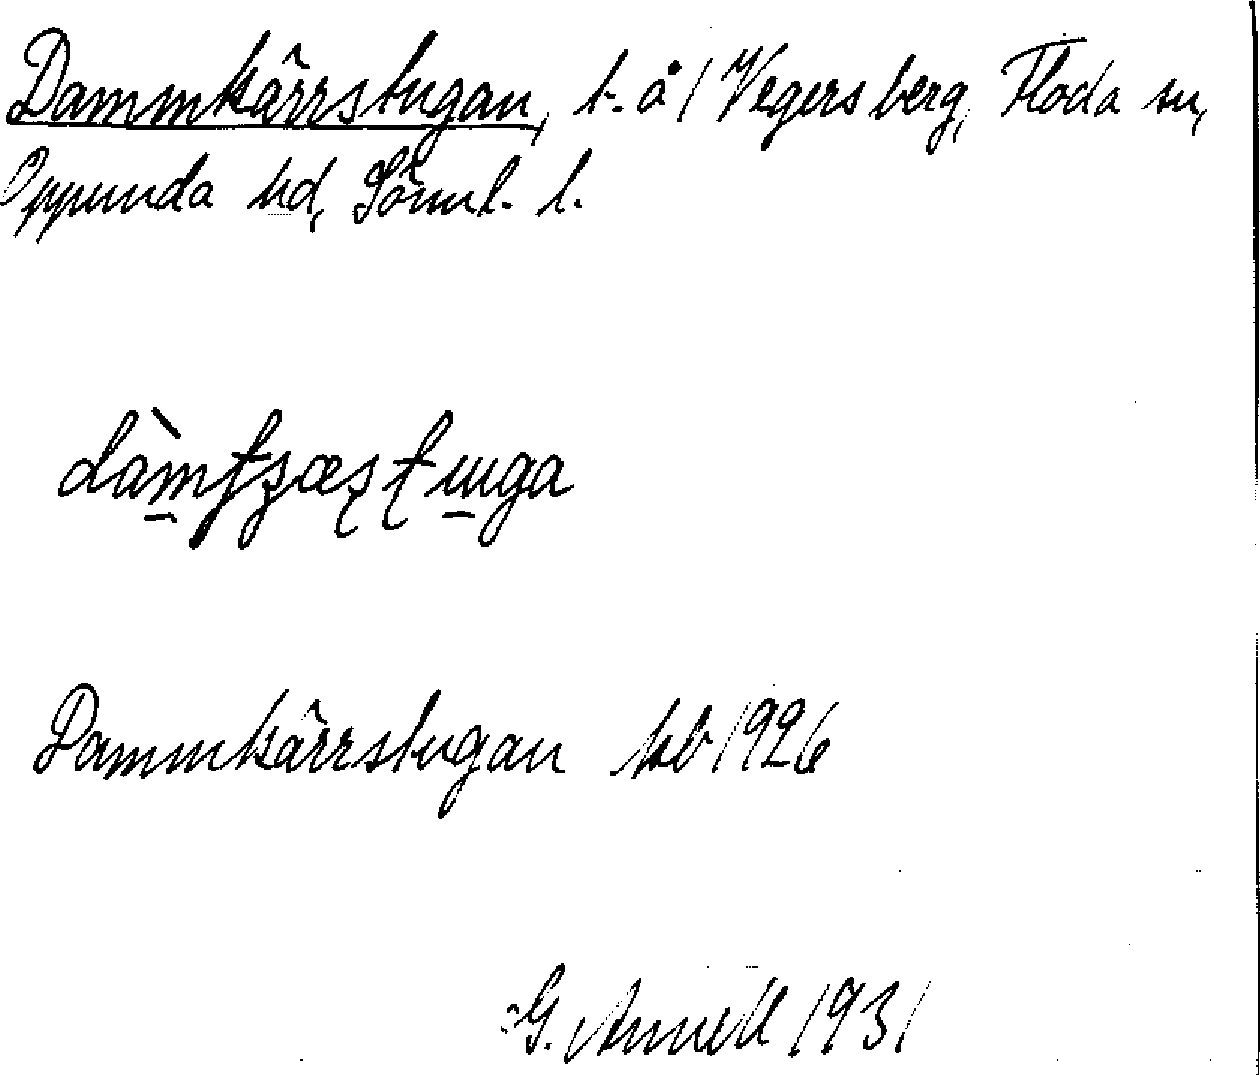 Dammkärrstugan, t. å 1 Vegersberg, Floda sn,
Oppunda hd, Söml. l.
Dammkärrstugan kb 1926
G. Annell 1931